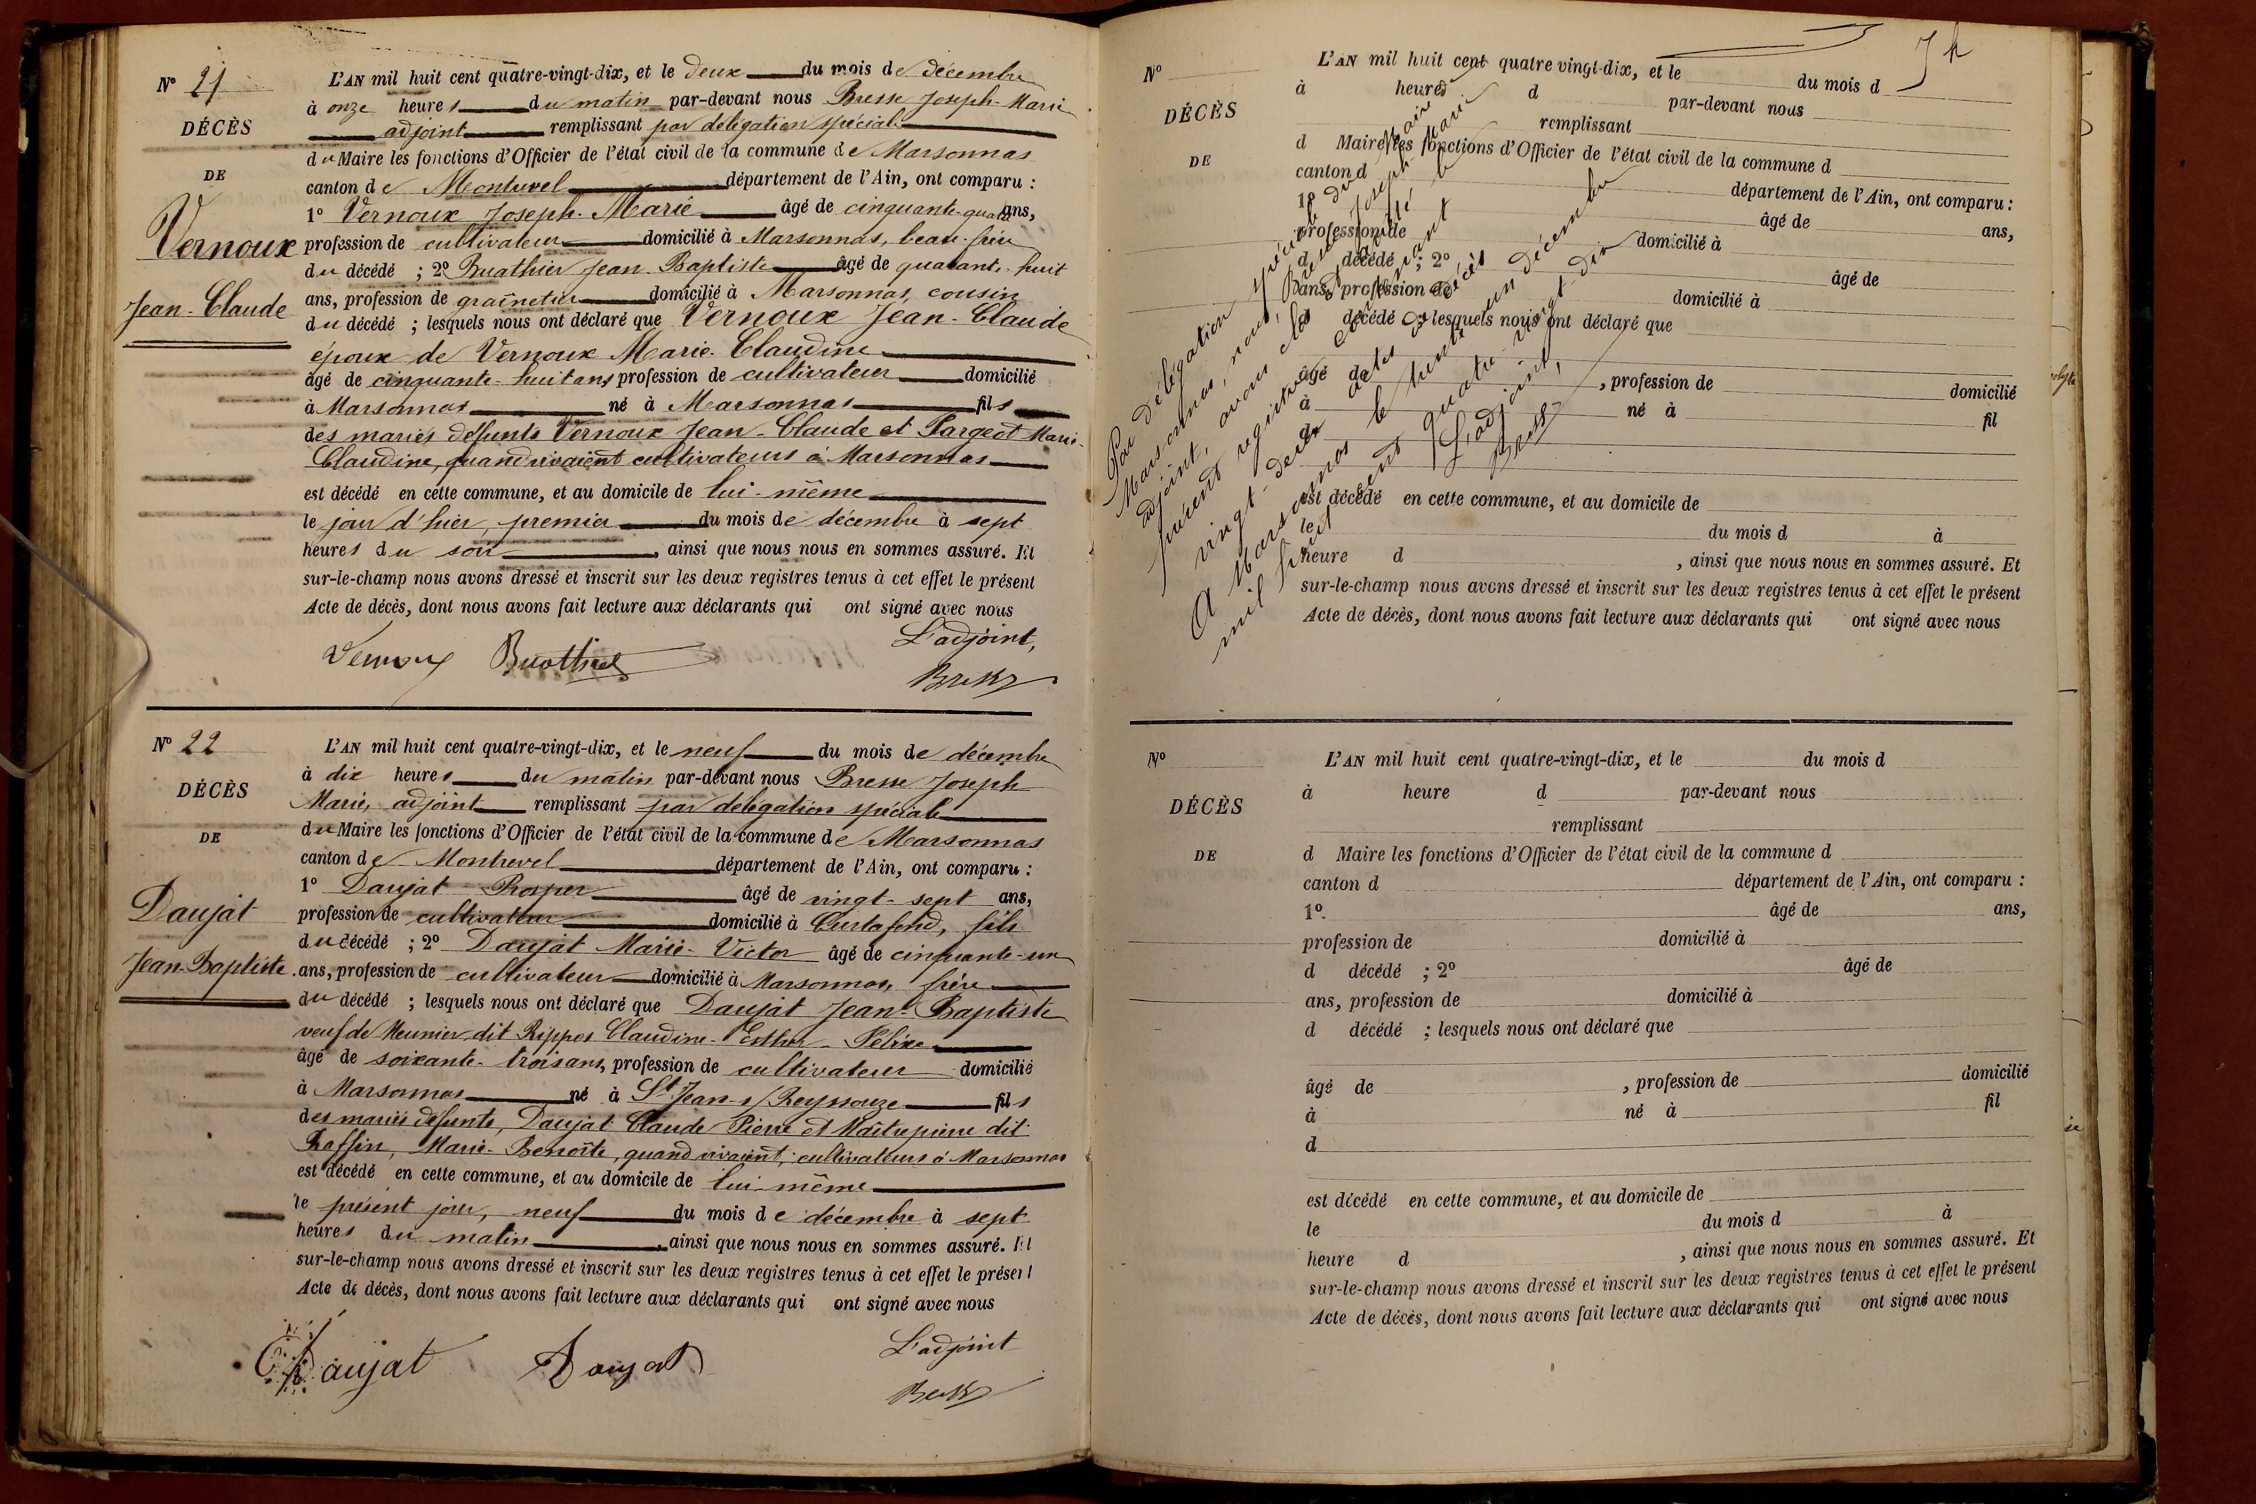 N° 21
DÉCÈS
DE
Vernoux
Jean-Claude
L'AN mil huit cent quatre-vingt-dix, et le deux du mois de décembre
à onze heures du matin par-devant nous Bresse Joseph-Marie
adjoint remplissant par délégation spéciale
du Maire les fonctions d'Officier de l'état civil de la commune de Marsonnas
canton de Montrevel département de l'Ain, ont comparu :
1° Vernoux Joseph-Marie âgé de cinquante-quatre ans,
profession de cultivateur domicilié à Marsonnas, beau-frère
du décédé ; 2° Buathier Jean-Baptiste âgé de quarante-huit
ans, profession de grainetier domicilié à Marsonnas, cousin
du décédé ; lesquels nous ont déclaré que Vernoux Jean-Claude
époux de Vernoux Marie-Claudine
âgé de cinquante-huit ans profession de cultivateur domicilié
à Marsonnas né à Marsonnas fils
des mariés défunts Vernoux Jean-Claude et Fargeot Marie-
Claudine, quand vivaient cultivateurs à Marsonnas
est décédé en cette commune, et au domicile de lui-même
le jour d'hier, premier du mois de décembre à sept
heures du soir, ainsi que nous nous en sommes assuré. Et
sur-le-champ nous avons dressé et inscrit sur les deux registres tenus à cet effet le présent
Acte de décès, dont nous avons fait lecture aux déclarants qui ont signé avec nous
L'adjoint,
Vernoux Buathier
Bresse
N° 22
DÉCÈS
DE
Daujat
Jean-Baptiste
L'AN mil huit cent quatre-vingt-dix, et le neuf du mois de décembre
à dix heures du matin par-devant nous Bresse Joseph
Marie, adjoint remplissant par délégation spéciale
du Maire les fonctions d'Officier de l'état civil de la commune de Marsonnas
canton de Montrevel département de l'Ain, ont comparu :
1° Daujat Prosper âgé de vingt-sept ans,
profession de cultivateur domicilié à Curtafond, fils
du décédé ; 2° Daujat Marie-Victor âgé de cinquante-un
ans, profession de cultivateur domicilié à Marsonnas, frère
du décédé ; lesquels nous ont déclaré que Daujat Jean-Baptiste
veuf de Meunier dit Rippes Claudine-Esther-Félixe
âgé de soixante-trois ans, profession de cultivateur domicilié
à Marsonnas né à St Jean-s/Reyssouze fils
des mariés défunts, Daujat Claude Pierre et Maîtrepierre dit
Raffin, Marie-Benoîte, quand vivaient, cultivateurs à Marsonnas
est décédé en cette commune, et au domicile de lui-même
le présent jour, neuf du mois de décembre à sept
heures du matin, ainsi que nous nous en sommes assuré. Et
sur-le-champ nous avons dressé et inscrit sur les deux registres tenus à cet effet le présent
Acte de décès, dont nous avons fait lecture aux déclarants qui ont signé avec nous
L'adjoint
Daujat Daujat
Bresse
N°
DÉCÈS
DE
L'AN mil huit cent quatre vingt-dix, et le du mois d
à heure d par-devant nous
remplissant
d Maire les fonctions d'Officier de l'état civil de la commune d
canton d département de l'Ain, ont comparu :
1° âgé de ans,
profession de domicilié à
d décédé ; 2° âgé de
ans, profession de domicilié à
d décédé ; lesquels nous ont déclaré que
âgé de , profession de domicilié
à né à fil
d
est décédé en cette commune, et au domicile de
le du mois d à
heure d , ainsi que nous nous en sommes assuré. Et
sur-le-champ nous avons dressé et inscrit sur les deux registres tenus à cet effet le présent
Acte de décès, dont nous avons fait lecture aux déclarants qui ont signé avec nous
Par délégation spéciale du Maire de
Marsonnas, nous, Bresse Joseph Marie
adjoint, avons clos et arrêté le
présent registre contenant
vingt-deux actes de décès
A Marsonnas le trente un décembre
mil huit cent quatre vingt-dix
L'adjoint,
Bresse
N°
DÉCÈS
DE
L'AN mil huit cent quatre-vingt-dix, et le du mois d
à heure d par-devant nous
remplissant
d Maire les fonctions d'Officier de l'état civil de la commune d
canton d département de l'Ain, ont comparu :
1° âgé de ans,
profession de domicilié à
d décédé ; 2° âgé de
ans, profession de domicilié à
d décédé ; lesquels nous ont déclaré que
âgé de , profession de domicilié
à né à fil
d
est décédé en cette commune, et au domicile de
le du mois d à
heure d , ainsi que nous nous en sommes assuré. Et
sur-le-champ nous avons dressé et inscrit sur les deux registres tenus à cet effet le présent
Acte de décès, dont nous avons fait lecture aux déclarants qui ont signé avec nous